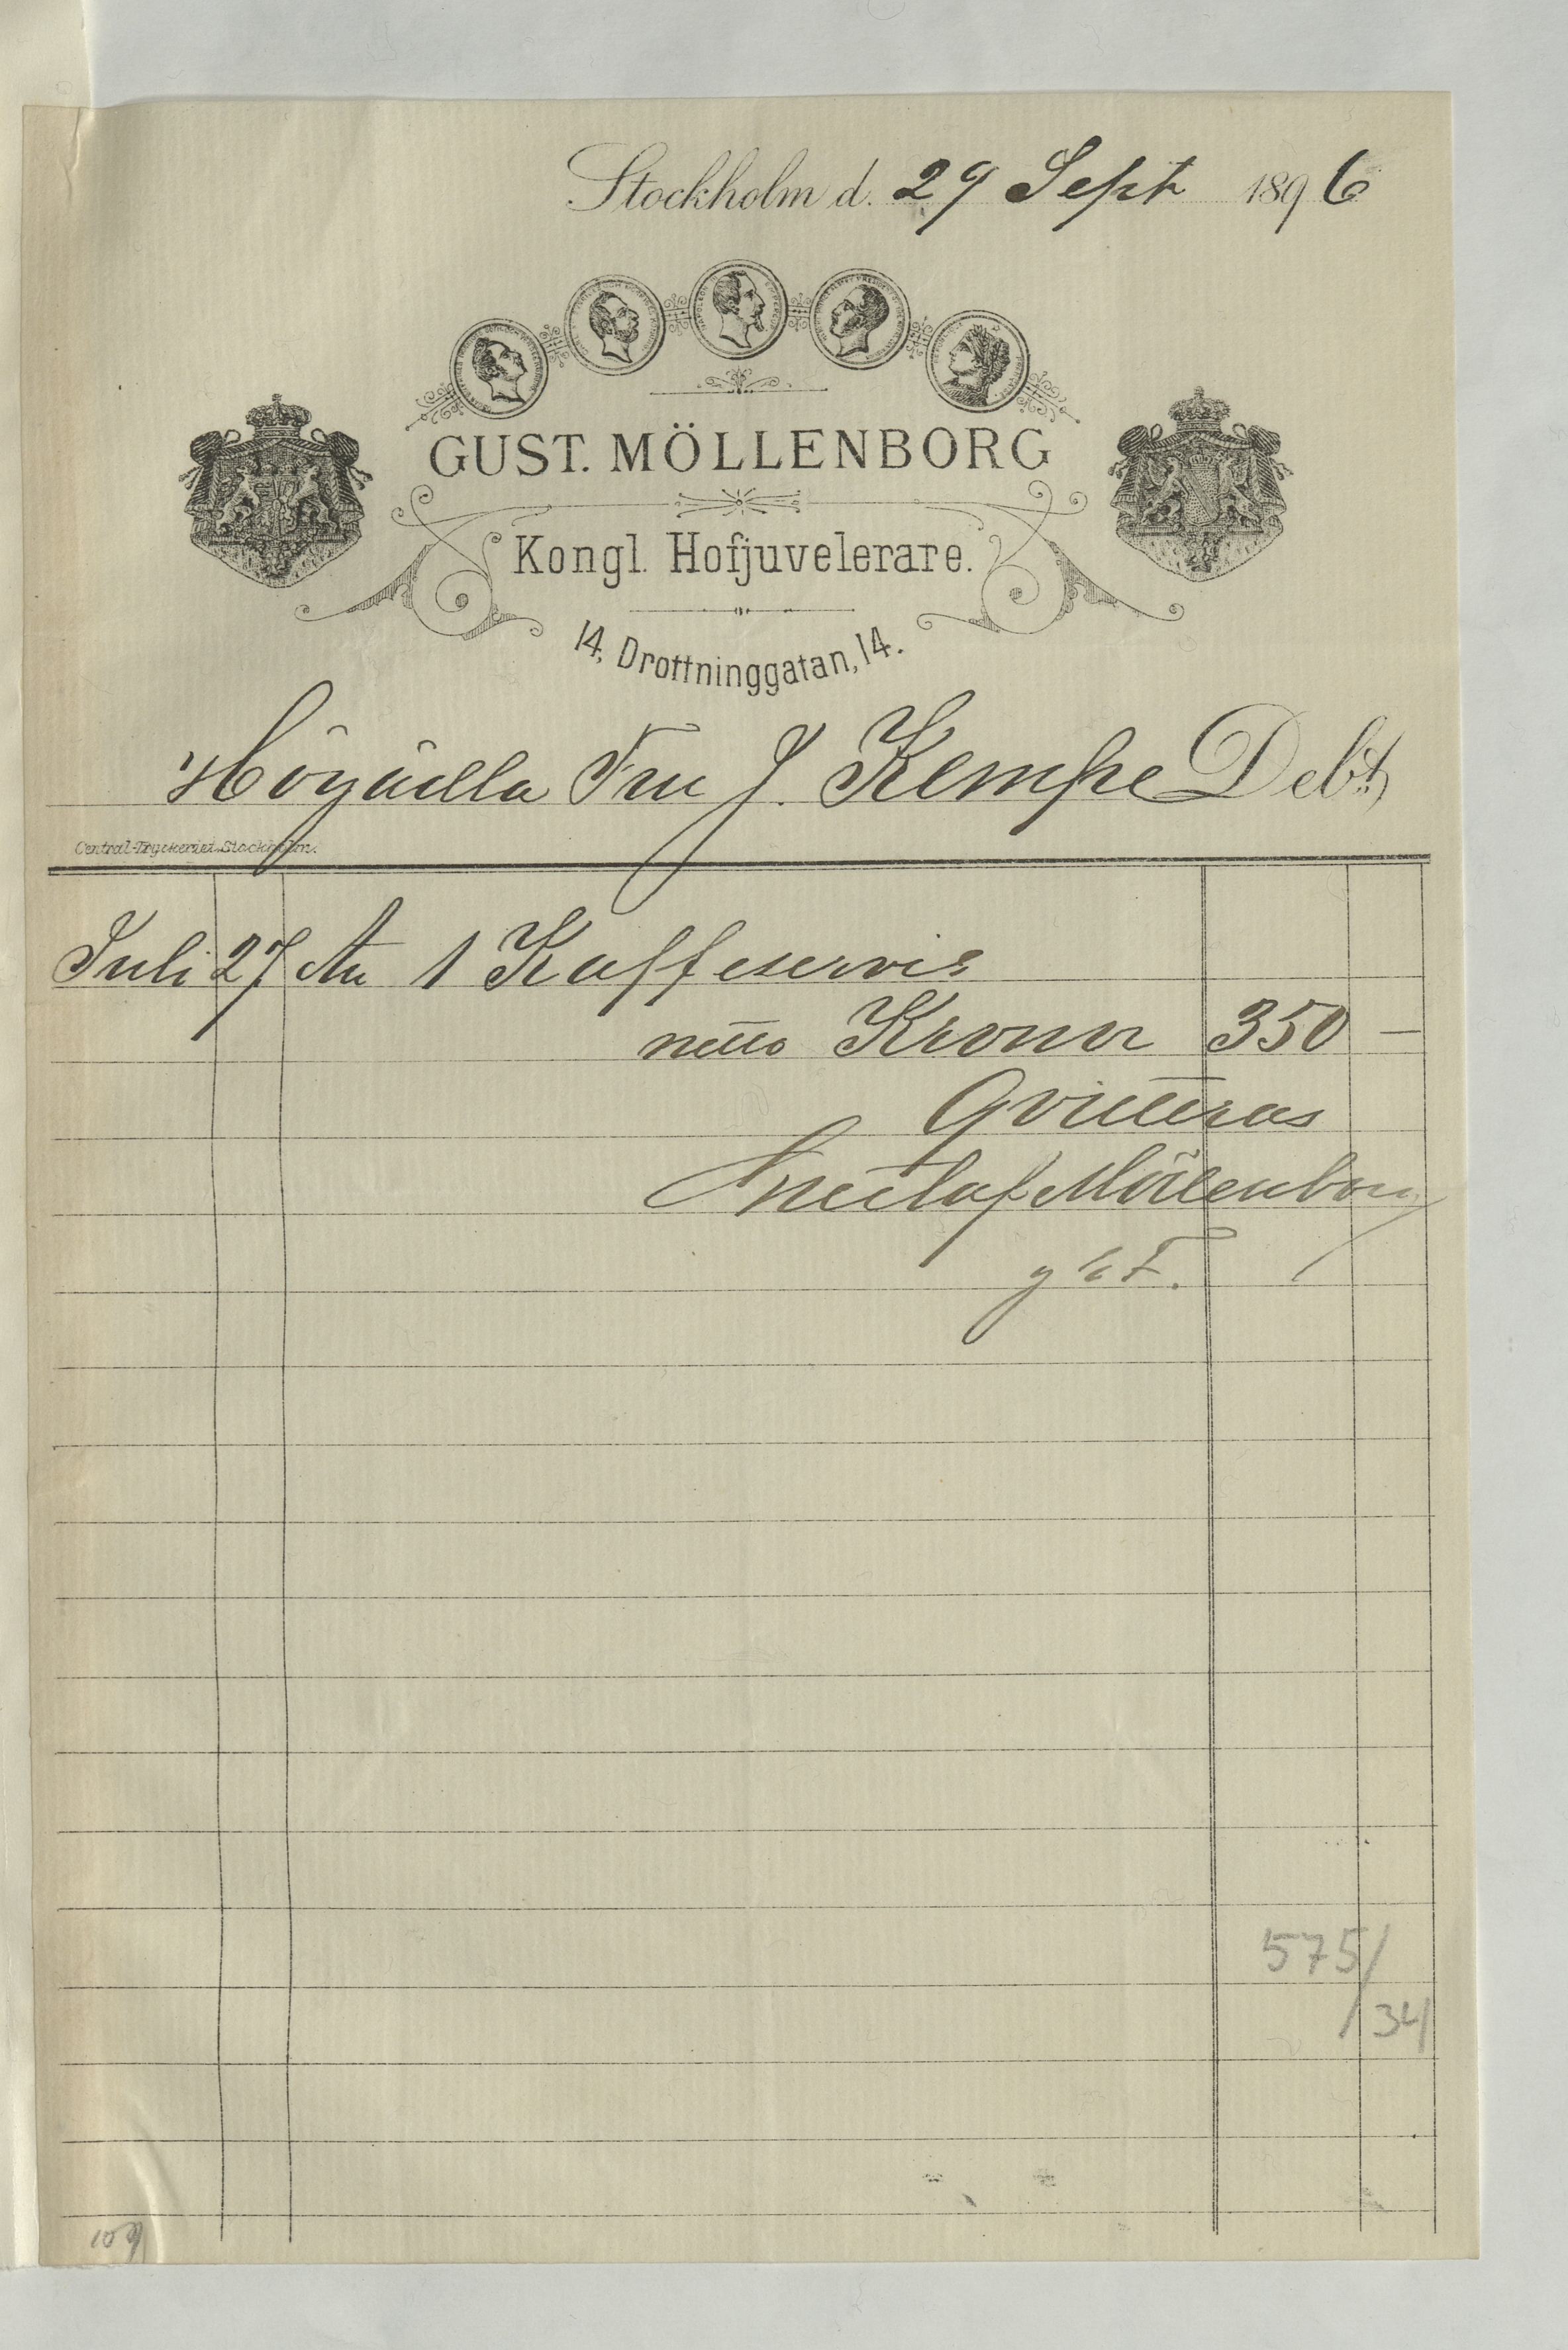 Stockholm d. 29 Sept 1896
GUST. MÖLLENBORG
Kongl. Hofjuvelerare.
14, Drottninggatan, 14.
Högädla Fru J. Kempe Debt
Central-Tryckeriet, Stockholm.
Juli 27 An 1 Kaffeservis
netto Kronor 350 —
Qvitteras
Gustaf Möllenborg
575/
/34
109